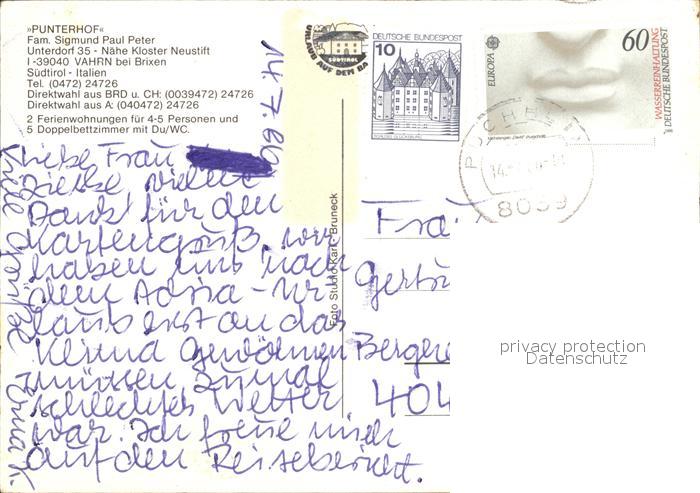 »PUNTERHOF«
Fam. Sigmund Paul Peter
Unterdorf 35 - Nähe Kloster Neustift
I -39040 VAHRN bei Brixen
Südtirol - Italien
Tel. (0472) 24726
Direktwahl aus BRD u. CH: (0039472) 24726
Direktwahl aus A: (040472) 24726
2 Ferienwohnungen für 4-5 Personen und
5 Doppelbettzimmer mit Du/WC.
URLAUB AUF DEM BA
SÜDTIROL
DEUTSCHE BUNDESPOST
10
SCHLOSS GLÜCKSBURG
EUROPA
60
WASSERREINHALTUNG
DEUTSCHE BUNDESPOST
PUCHHEIM
8039
14. 7. 86
Liebe Frau
vielen
Dank für den
Kartengruß, wir
haben uns nach
dem Adria-Ur
laub erst an das
Klima gewöhnen
müssen zumal
schlechtes Wetter
war. Ich freue mich
auf den Reisebericht.
Viele Grüße
Erna K.
Foto Studio Kari - Bruneck
Frau
Gertr
Berger
404
privacy protection
Datenschutz